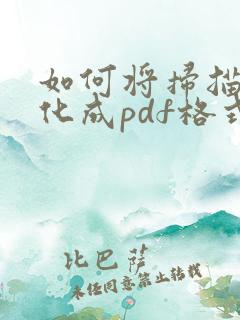 如何将扫描
化成pdf格式
比巴萨
未经同意禁止转载